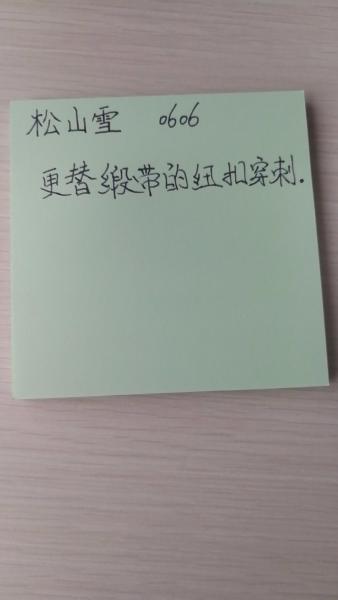 松山雪 0606
更替缎带的纽扣穿刺.